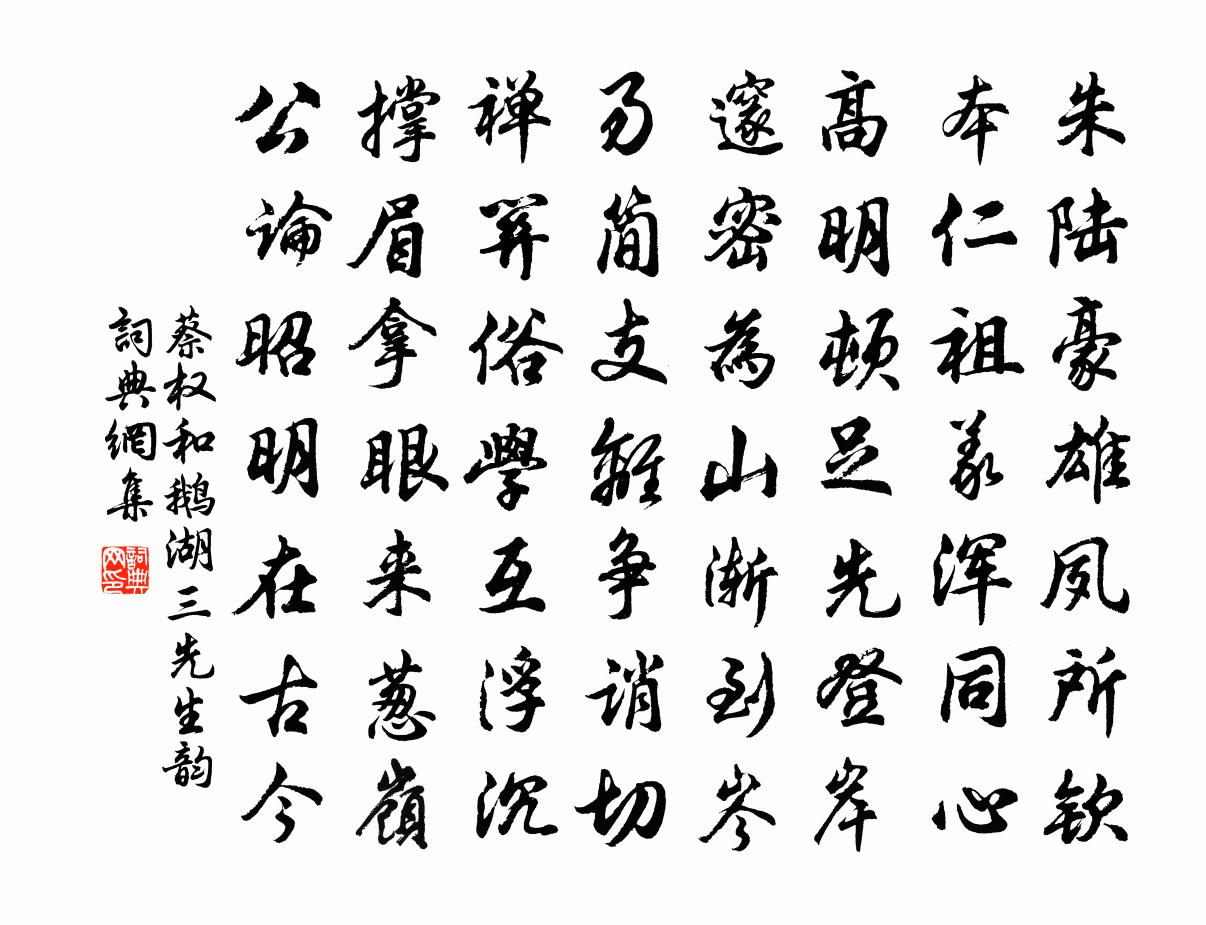 朱陆豪雄夙所钦
本仁祖義浑同心
高明顿足先登岸
邃密為山渐到岑
易简支離争诮切
禅関俗學互浮沉
撑眉拿眼来葱嶺
公论昭明在古今
蔡权和鹅湖三先生韵
詞典網集
詞典网印